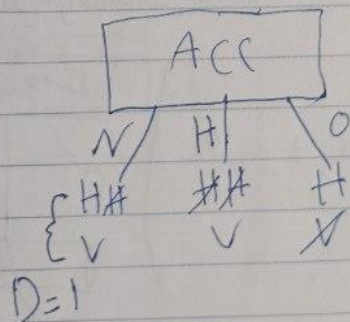 ACC
N H O
HH HH H
{ V V V
D=1